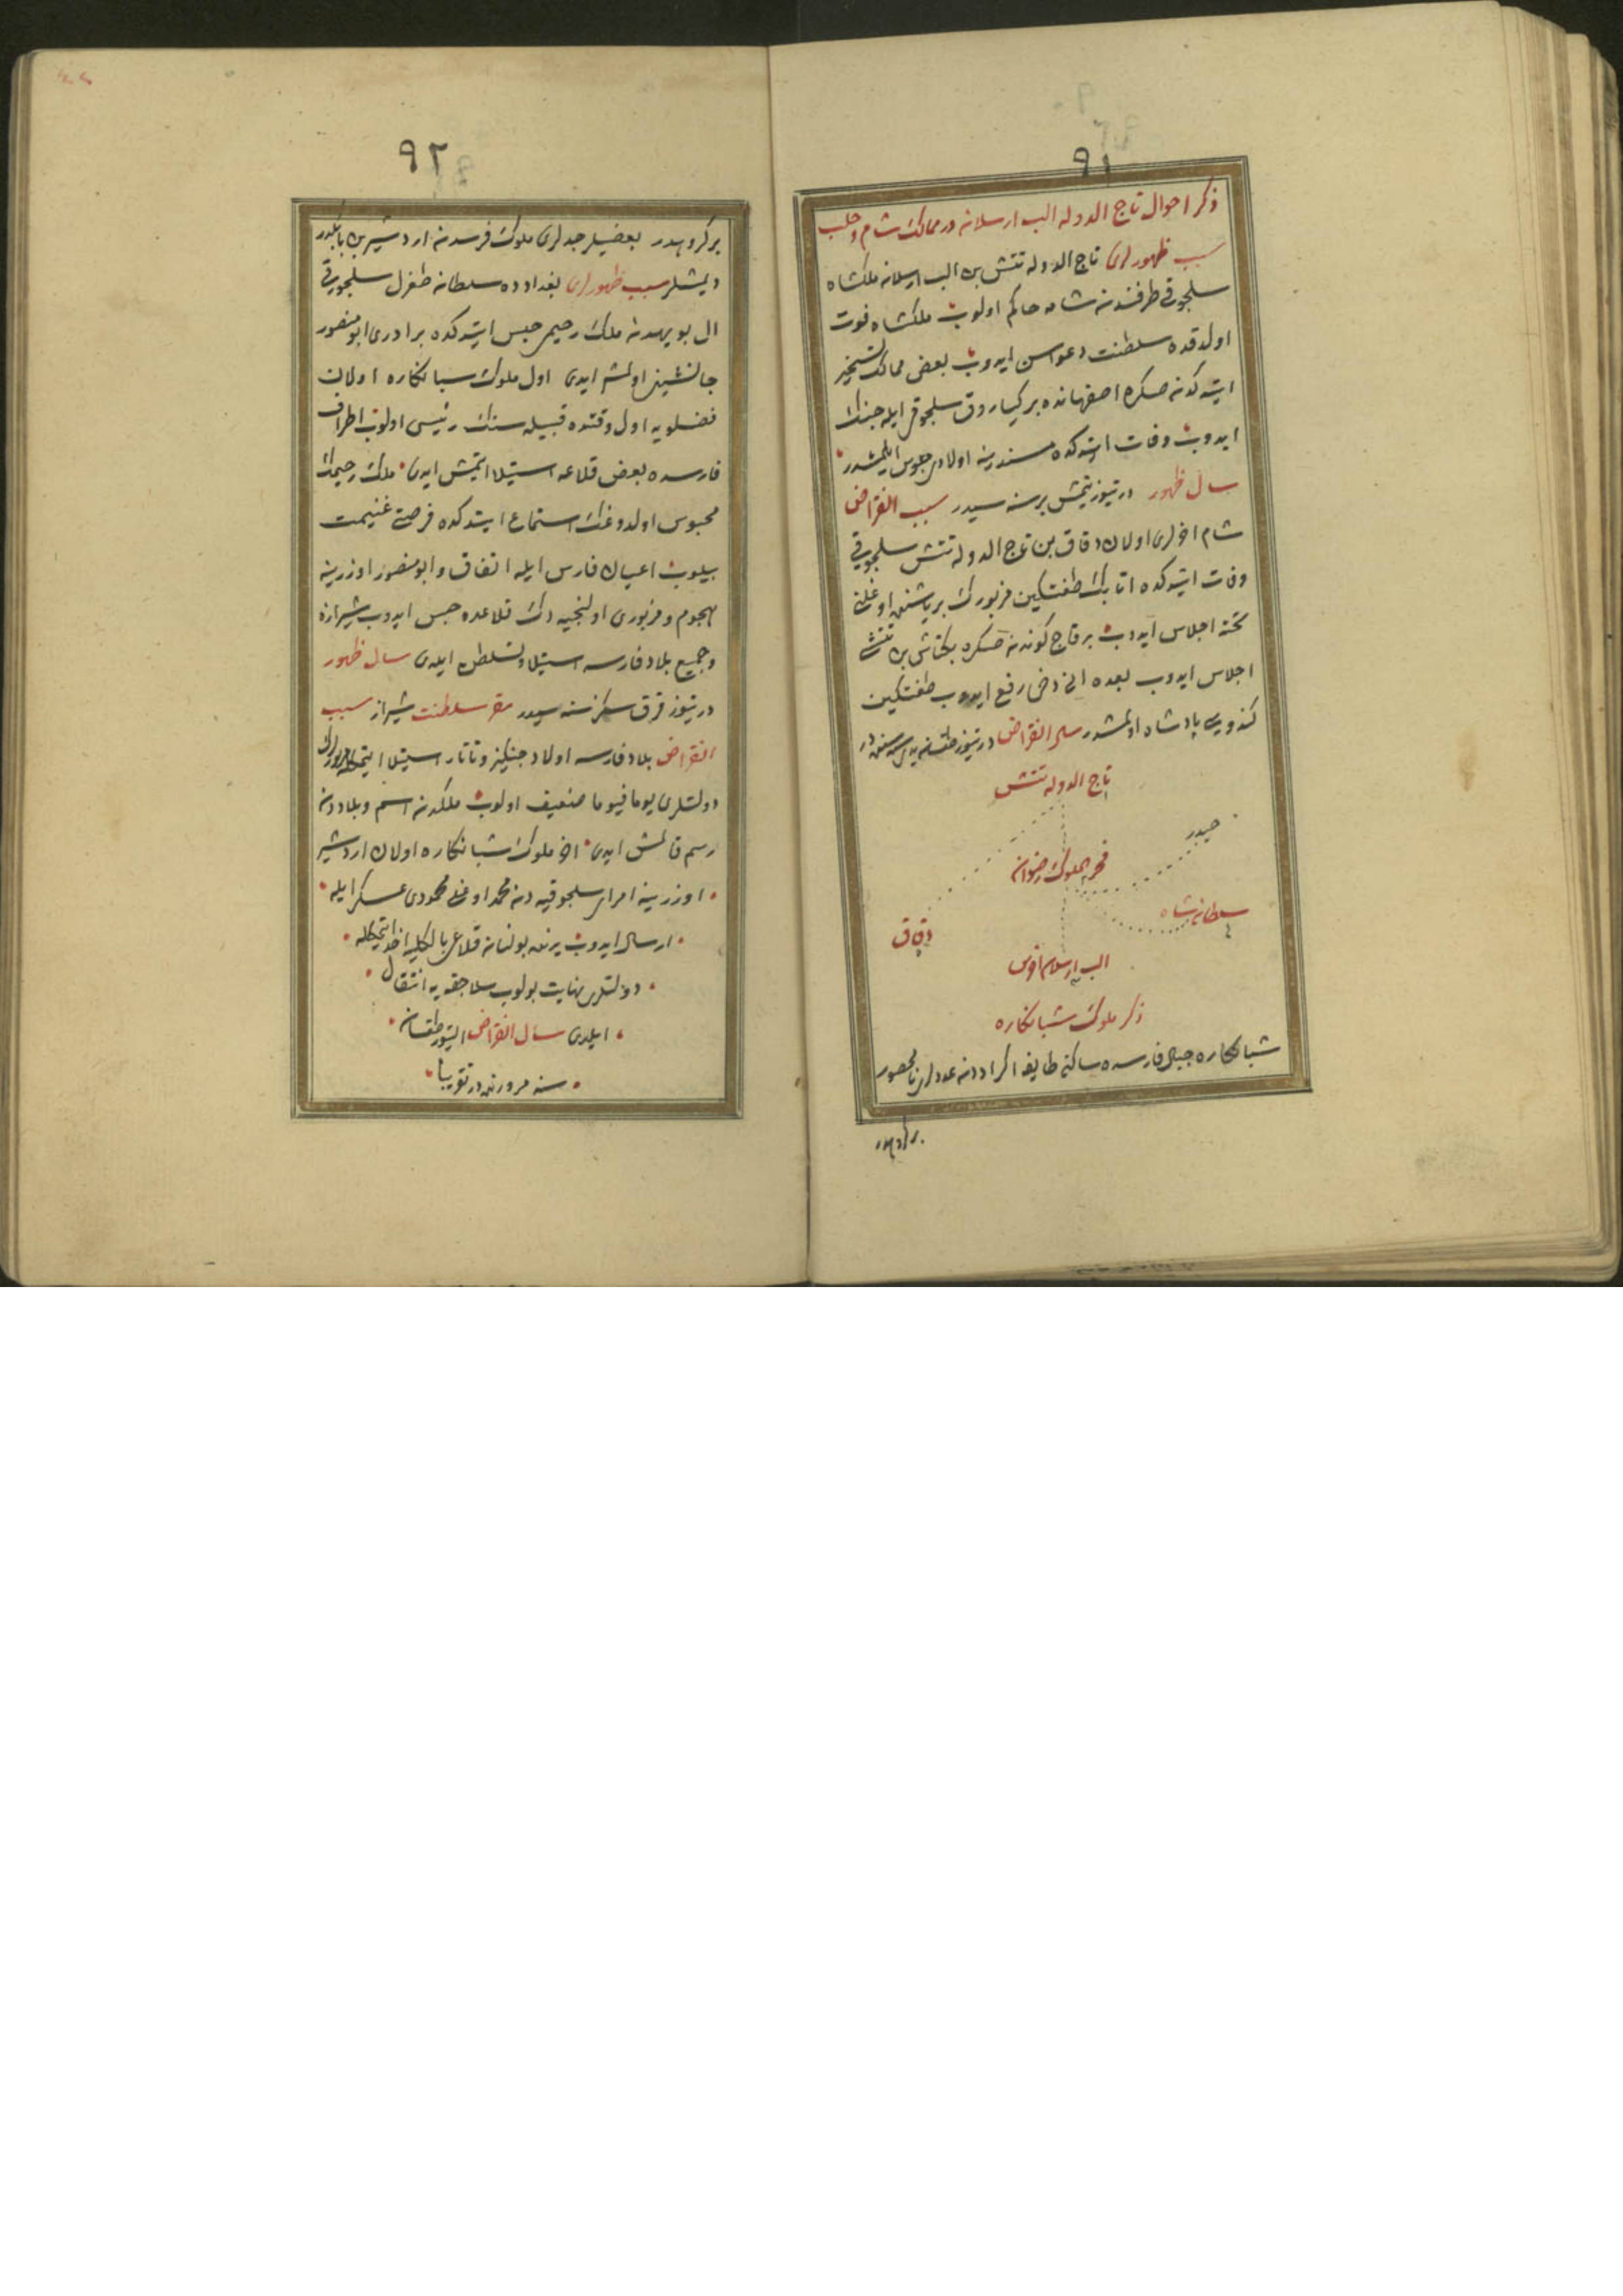 ٩١
ذكر احوال تاج الدوله الب ارسلان در ممالك شام و حلب
سبب ظهورلری تاج الدوله تتش بن الب ارسلان ملكشاه
سلجوقی طرفندن شامه حاكم اولوب ملكشاه فوت
اولدقده سلطنت دعواسن ایدوب بعض ممالك تسخیر
ایتدكدنصكره اصفهانده بركیاروق سلجوقی ایله جنك
ایدوب وفات ایتدكده مسندینه اولادی جلوس ایلمشدر
سال ظهور درتیوز یتمش برسنه سیدر سبب انقراض
شام اخرلری اولان دقاق بن تاج الدوله تتش سلجوقی
وفات ایتدكده اتابك طغتكین مزبورك بر یاشنده اوغلنی
تخته اجلاس ایدوب برقاچ كوندنصكره بكتاش بن تتش
اجلاس ایدوب بعده انی دخی رفع ایدوب طغتكین
كندویی پادشاه اولمشدر سال انقراض درتیوز طقسان یدی سنه سنده در
تاج الدوله تتش
حیدر
فخر الملوك رضوان
سلطانشاه
دقاق
الب ارسلان اخرس
ذكر ملوك شبانكاره
شبانكاره جبال فارسده ساكن طایفه اكراددن عددلری نامحصور
٩٢
بر كروهدر بعضیلر جدلری ملوك فرسدن اردشیر بن بابكدر
دیمشلر سبب ظهورلری بغدادده سلطان طغرل سلجوقی
ال بویهدن ملك رحیمی حبس ایتدكده برادری ابو منصور
جانشین اولمش ایدی اول ملوك شبانكاره اولان
فضلویه اول وقتده قبیله سنك رئیسی اولوب اطراف
فارسده بعض قلاعه استیلا ایتمش ایدی ملك رحیمك
محبوس اولدوغنك استماع ایتدكده فرصتی غنیمت
بیلوب اعیان فارس ایله اتفاق و ابو منصور اوزرینه
هجوم و مزبوری اولنجیه دك قلاعده حبس ایدوب شیرازه
و جمیع بلاد فارسه استیلا و تسلط ایلدی سال ظهور
درتیوز قرق سكز سنه سیدر مقر سلطنت شیراز سبب
انقراض بلاد فارسه اولاد جنكیز و تاتار استیلا ایتمكله
دولتلری یوما فیوما ضعیف اولوب ملكدن اسم و بلاددن
رسم قالمش ایدی اخر ملوك شبانكاره اولان اردشیر
اوزرینه امرای سلجوقیه دن محمد اوغلی محمودی عسكر ایله
ارسال ایدوب یرنده بولنان قلاعی بالكلیه اخذ ایتمكله
دولتلری نهایت بولوب سلاجقه یه انتقال
ایلدی سال انقراض التیوز طقسان
سنه مرورنده در تقریبا